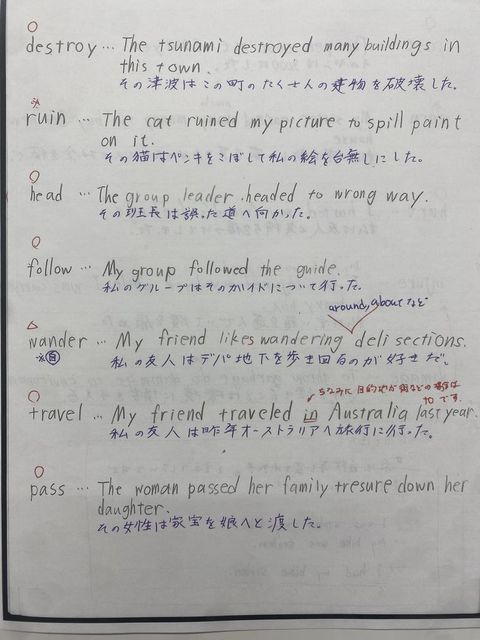 destroy … The tsunami destroyed many buildings in
this town.
その津波はこの町のたくさんの建物を破壊した。
ruin … The cat ruined my picture to spill paint
on it.
その猫はペンキをこぼして私の絵を台無しにした。
head … The group leader headed to wrong way.
その班長は誤った道へ向かった。
follow … My group followed the guide.
私のグループはそのガイドについて行った。
around, about など
wander … My friend likes wandering deli sections.
※自
私の友人はデパ地下を歩き回るのが好きだ。
ちなみに目的地が国などの場合は
toです。
travel … My friend traveled in Australia last year.
私の友人は昨年オーストラリアへ旅行に行った。
pass … The woman passed her family tresure down her
daughter.
その女性は家宝を娘へと渡した。